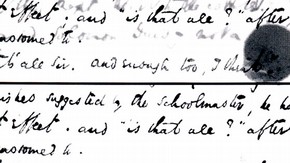 t Effect. and "is that all?" after
assomed to.
t's all Sir. and enough too, I think
ishes suggested by the Schoolmaster, he he
t Effect. and "is that all?" after
assomed to.